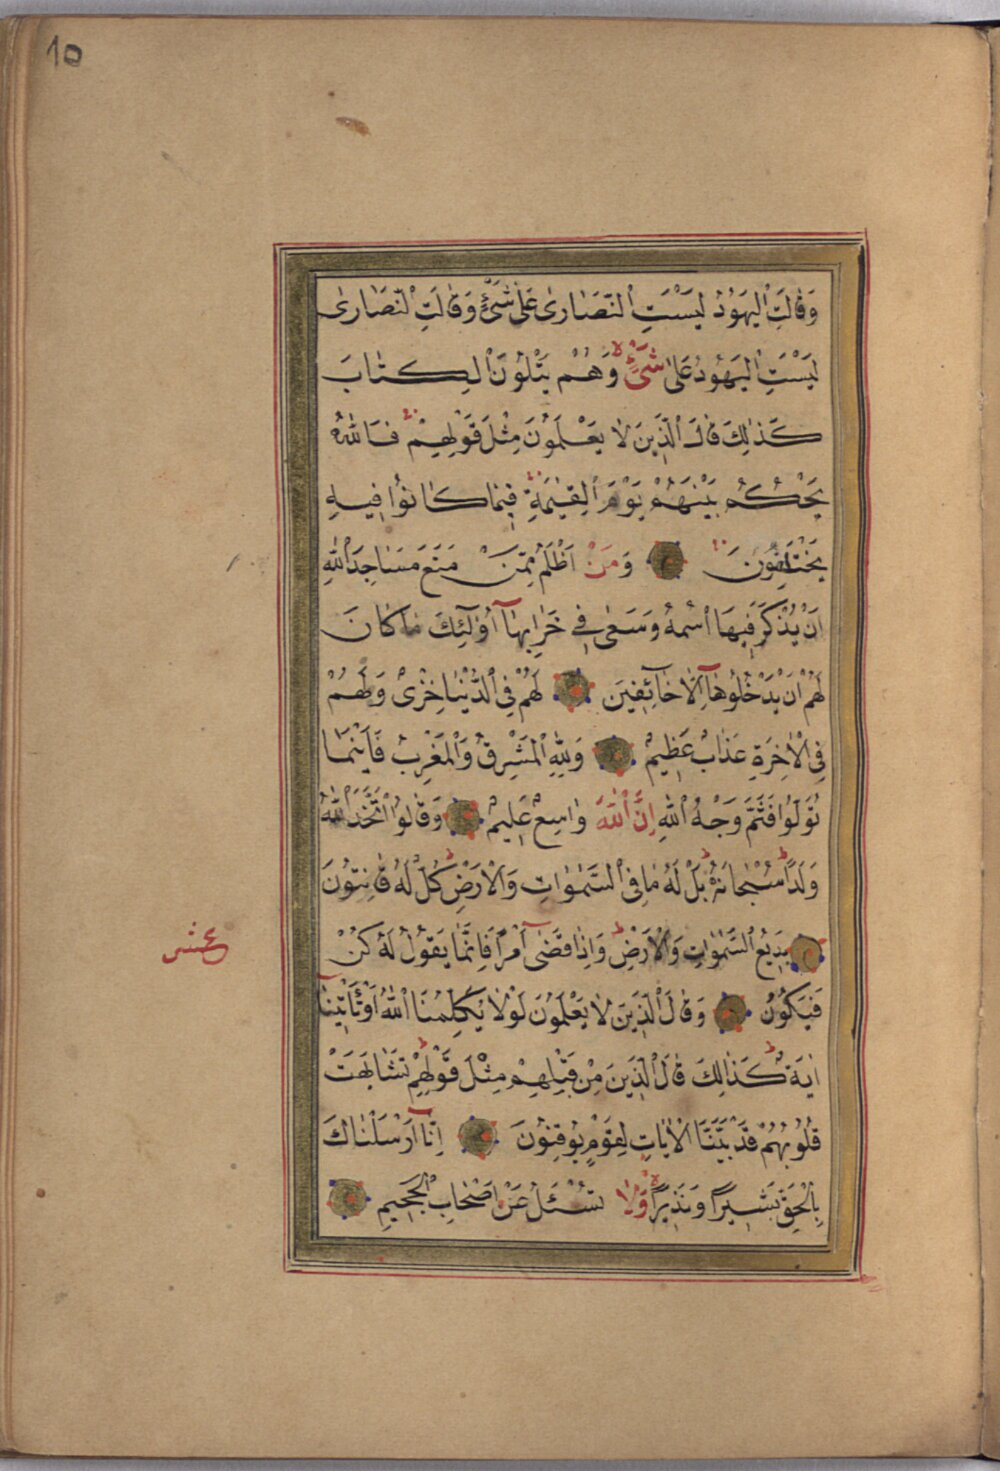 10
وَقَالَتِ الْيَهُودُ لَيْسَتِ النَّصَارٰى عَلٰى شَيْءٍ وَقَالَتِ النَّصَارٰى
لَيْسَتِ الْيَهُودُ عَلٰى شَيْءٍ وَهُمْ يَتْلُونَ الْكِتَابَ
كَذٰلِكَ قَالَ الَّذِينَ لَا يَعْلَمُونَ مِثْلَ قَوْلِهِمْ فَاللّٰهُ
يَحْكُمُ بَيْنَهُمْ يَوْمَ الْقِيٰمَةِ فِيمَا كَانُوا فِيهِ
يَخْتَلِفُونَ وَمَنْ اَظْلَمُ مِمَّنْ مَنَعَ مَسَاجِدَ اللّٰهِ
اَنْ يُذْكَرَ فِيهَا اسْمُهُ وَسَعٰى فِي خَرَابِهَا اُولٰئِكَ مَا كَانَ
لَهُمْ اَنْ يَدْخُلُوهَا اِلَّا خَائِفِينَ لَهُمْ فِي الدُّنْيَا خِزْيٌ وَلَهُمْ
فِي الْاٰخِرَةِ عَذَابٌ عَظِيمٌ وَلِلّٰهِ الْمَشْرِقُ وَالْمَغْرِبُ فَاَيْنَمَا
تُوَلُّوا فَثَمَّ وَجْهُ اللّٰهِ اِنَّ اللّٰهَ وَاسِعٌ عَلِيمٌ وَقَالُوا اتَّخَذَ اللّٰهُ
وَلَدًا سُبْحَانَهُ بَلْ لَهُ مَا فِي السَّمٰوَاتِ وَالْاَرْضِ كُلٌّ لَهُ قَانِتُونَ
بَدِيعُ السَّمٰوَاتِ وَالْاَرْضِ وَاِذَا قَضٰى اَمْرًا فَاِنَّمَا يَقُولُ لَهُ كُنْ
عشر
فَيَكُونُ وَقَالَ الَّذِينَ لَا يَعْلَمُونَ لَوْلَا يُكَلِّمُنَا اللّٰهُ اَوْ تَأْتِينَا
اٰيَةٌ كَذٰلِكَ قَالَ الَّذِينَ مِنْ قَبْلِهِمْ مِثْلَ قَوْلِهِمْ تَشَابَهَتْ
قُلُوبُهُمْ قَدْ بَيَّنَّا الْاٰيَاتِ لِقَوْمٍ يُوقِنُونَ اِنَّا اَرْسَلْنَاكَ
بِالْحَقِّ بَشِيرًا وَنَذِيرًا وَلَا تُسْئَلُ عَنْ اَصْحَابِ الْجَحِيمِ